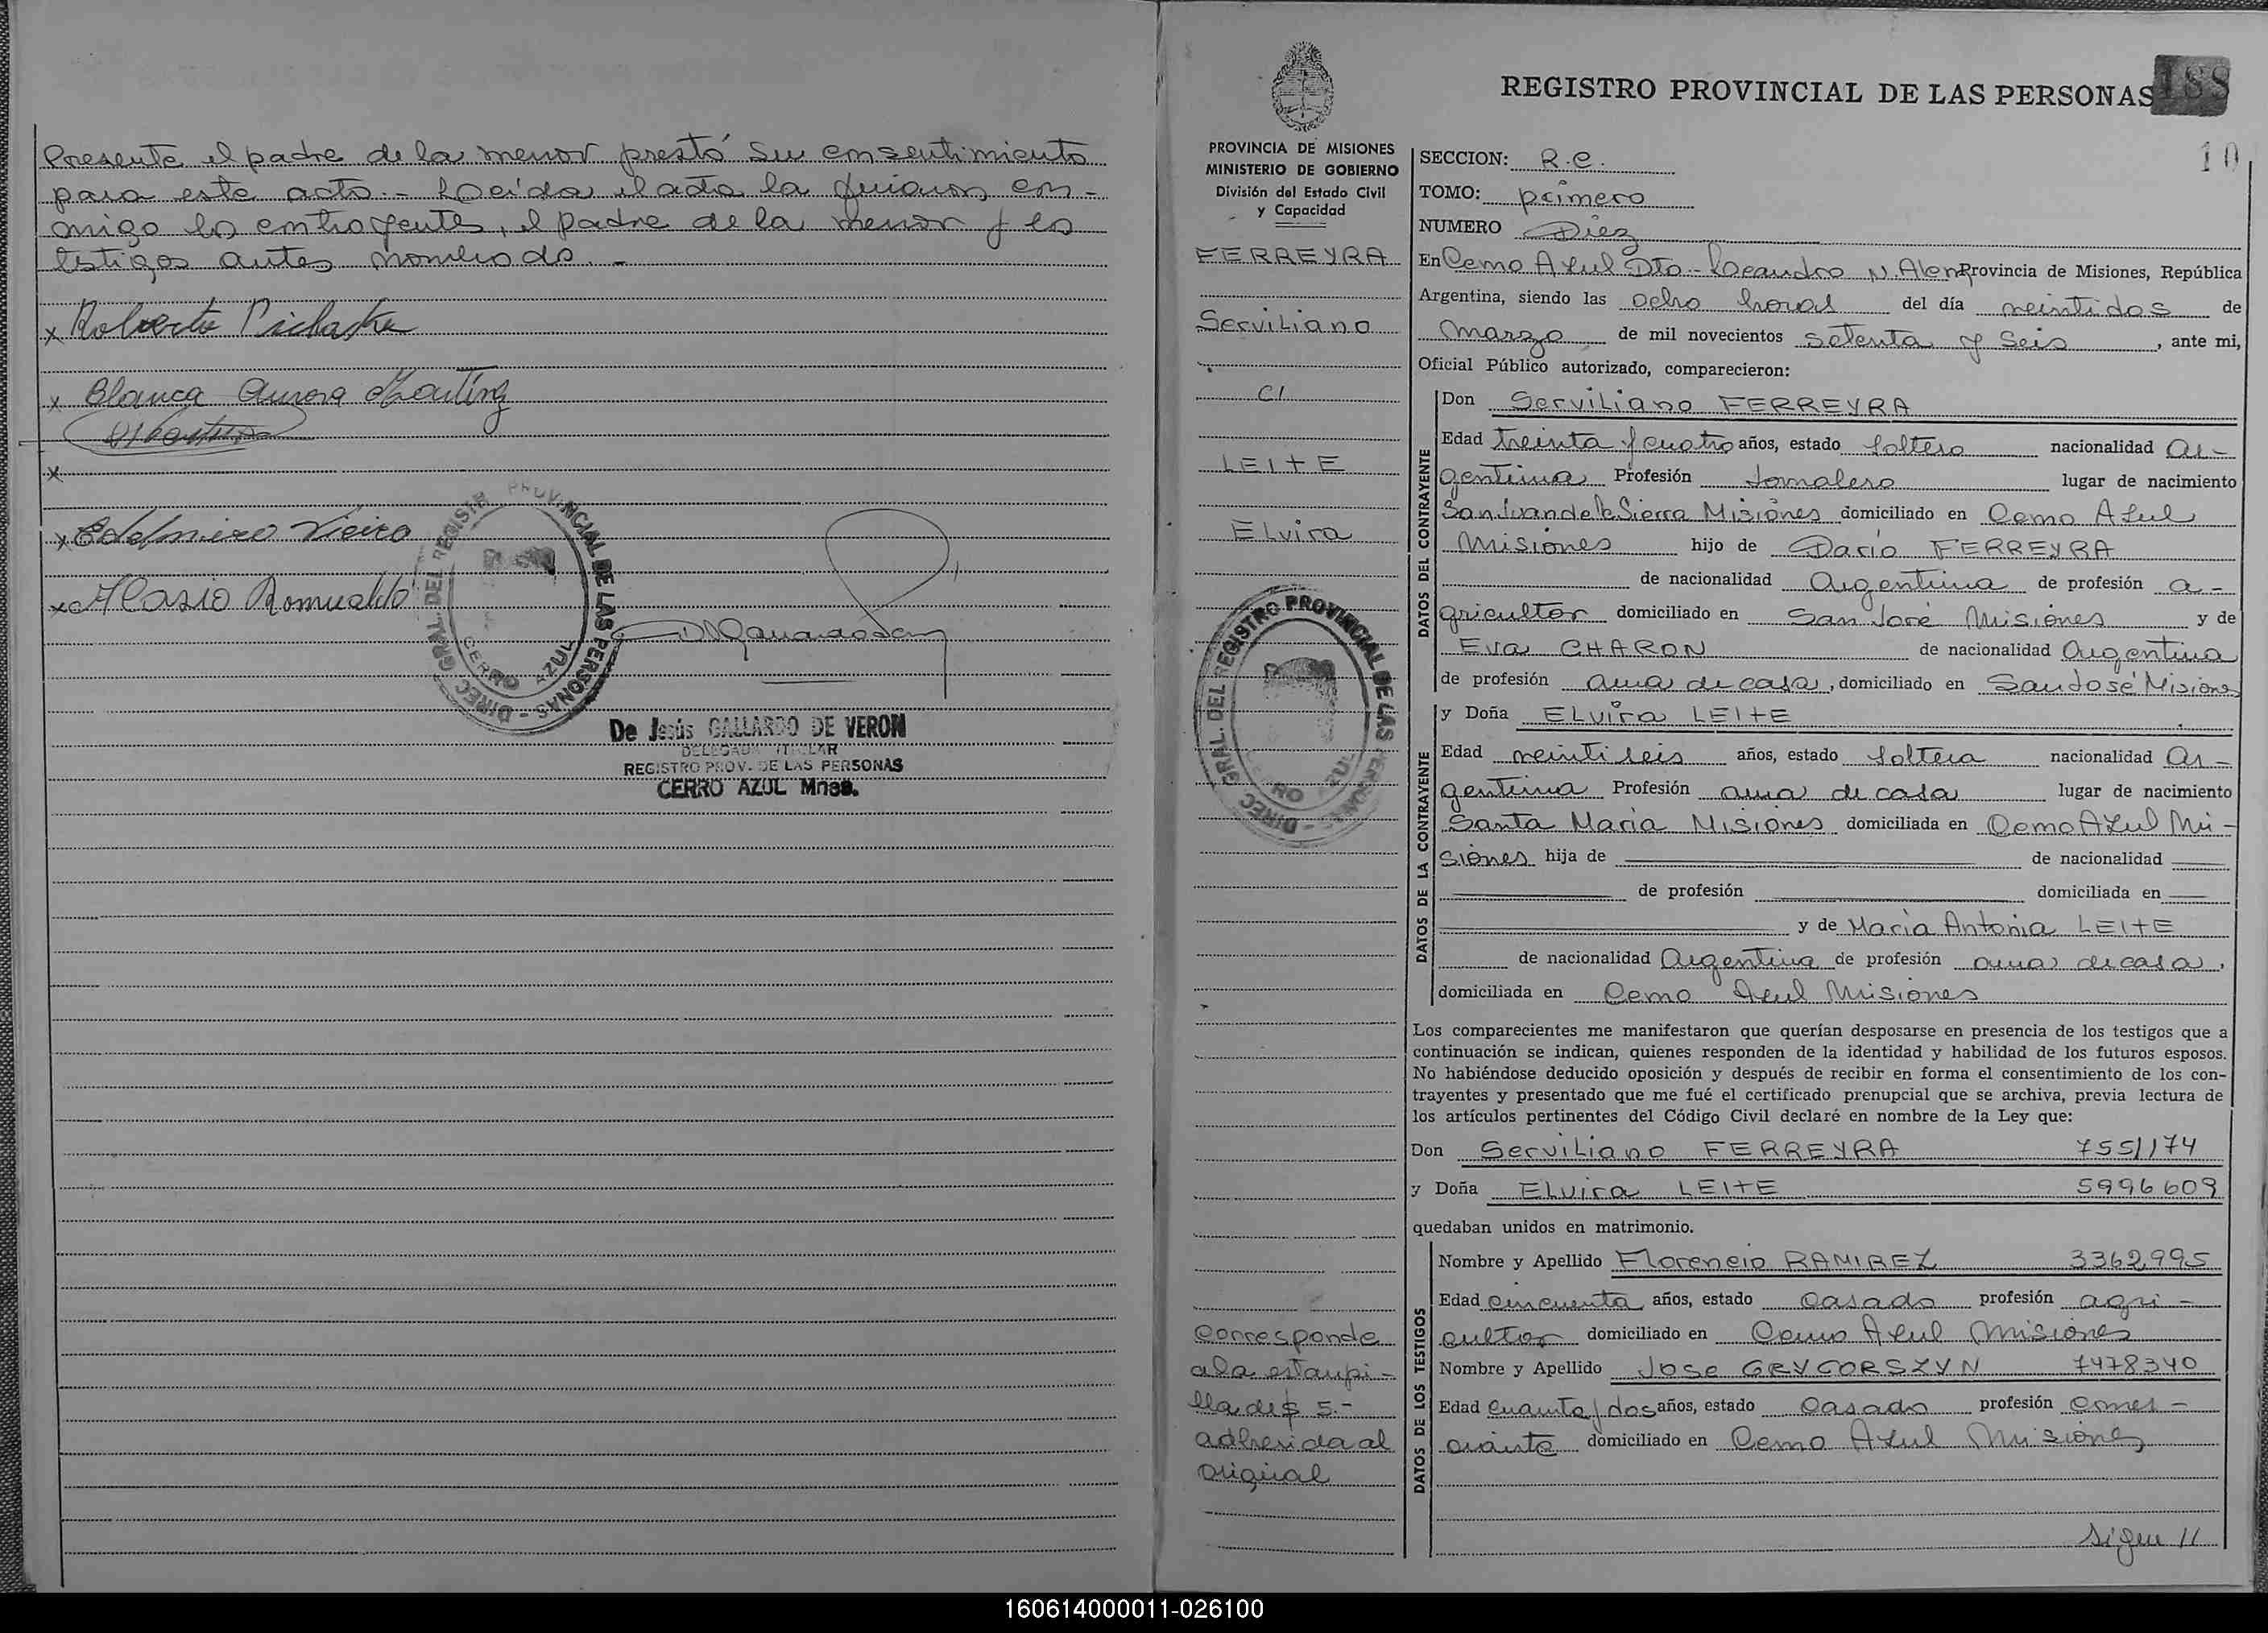 Presente el padre de la menor prestó su consentimiento
para este acto.- Leída el acta la firmaron con-
migo los contrayentes, el padre de la menor y los
testigos antes nombrado.-
x Roberto
x Blanca Aurora
x
x Edelmiro Vieira
x Romualdo
DIREC. GRAL. DEL REGISTRO PROVINCIAL DE LAS PERSONAS -
CERRO AZUL
De Jesús GALLARDO DE VERON
DELEGADA TITULAR
REGISTRO PROV. DE LAS PERSONAS
CERRO AZUL Mnes.
REGISTRO PROVINCIAL DE LAS PERSONAS
188
10
PROVINCIA DE MISIONES
MINISTERIO DE GOBIERNO
División del Estado Civil
y Capacidad
FERREYRA
Serviliano
C/
LEITE
Elvira
DIREC. GRAL. DEL REGISTRO PROVINCIAL DE LAS PERSONAS -
CERRO AZUL
Corresponde
a la estampi-
lla de $ 5.-
adherida al
original
SECCION: R.C.
TOMO: primero
NUMERO Diez
En Cerro Azul Dto.- Leandro N. Alem Provincia de Misiones, República
Argentina, siendo las ocho horas del día veintidos de
marzo de mil novecientos setenta y seis, ante mi,
Oficial Público autorizado, comparecieron:
DATOS DEL CONTRAYENTE
Don Serviliano FERREYRA
Edad treinta y cuatro años, estado soltero nacionalidad ar-
gentina Profesión Jornalero lugar de nacimiento
San Juan de la Sierra Misiones domiciliado en Cerro Azul
Misiones hijo de Dario FERREYRA
de nacionalidad argentina de profesión a-
gricultor domiciliado en San José Misiones y de
Eva CHARON de nacionalidad argentina
de profesión ama de casa, domiciliado en San José Misiones
DATOS DE LA CONTRAYENTE
y Doña Elvira LEITE
Edad veintiseis años, estado soltera nacionalidad ar-
gentina Profesión ama de casa lugar de nacimiento
Santa María Misiones domiciliada en Cerro Azul Mi-
siones hija de de nacionalidad
de profesión domiciliada en
y de María Antonia LEITE
de nacionalidad argentina de profesión ama de casa,
domiciliada en Cerro Azul Misiones
Los comparecientes me manifestaron que querían desposarse en presencia de los testigos que a
continuación se indican, quienes responden de la identidad y habilidad de los futuros esposos.
No habiéndose deducido oposición y después de recibir en forma el consentimiento de los con-
trayentes y presentado que me fué el certificado prenupcial que se archiva, previa lectura de
los artículos pertinentes del Código Civil declaré en nombre de la Ley que:
Don Serviliano FERREYRA 7551174
y Doña Elvira LEITE 5996609
quedaban unidos en matrimonio.
DATOS DE LOS TESTIGOS
Nombre y Apellido Florencio RAMIREZ 3362995
Edad cincuenta años, estado casado profesión agri-
cultor domiciliado en Cerro Azul Misiones
Nombre y Apellido Jose GRYCORSZYN 7478340
Edad cuarenta y dos años, estado casado profesión comer-
ciante domiciliado en Cerro Azul Misiones
Sigue //
160614000011-026100